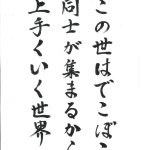 この世はでこぼこ
同士が集まるから
上手くいく世界